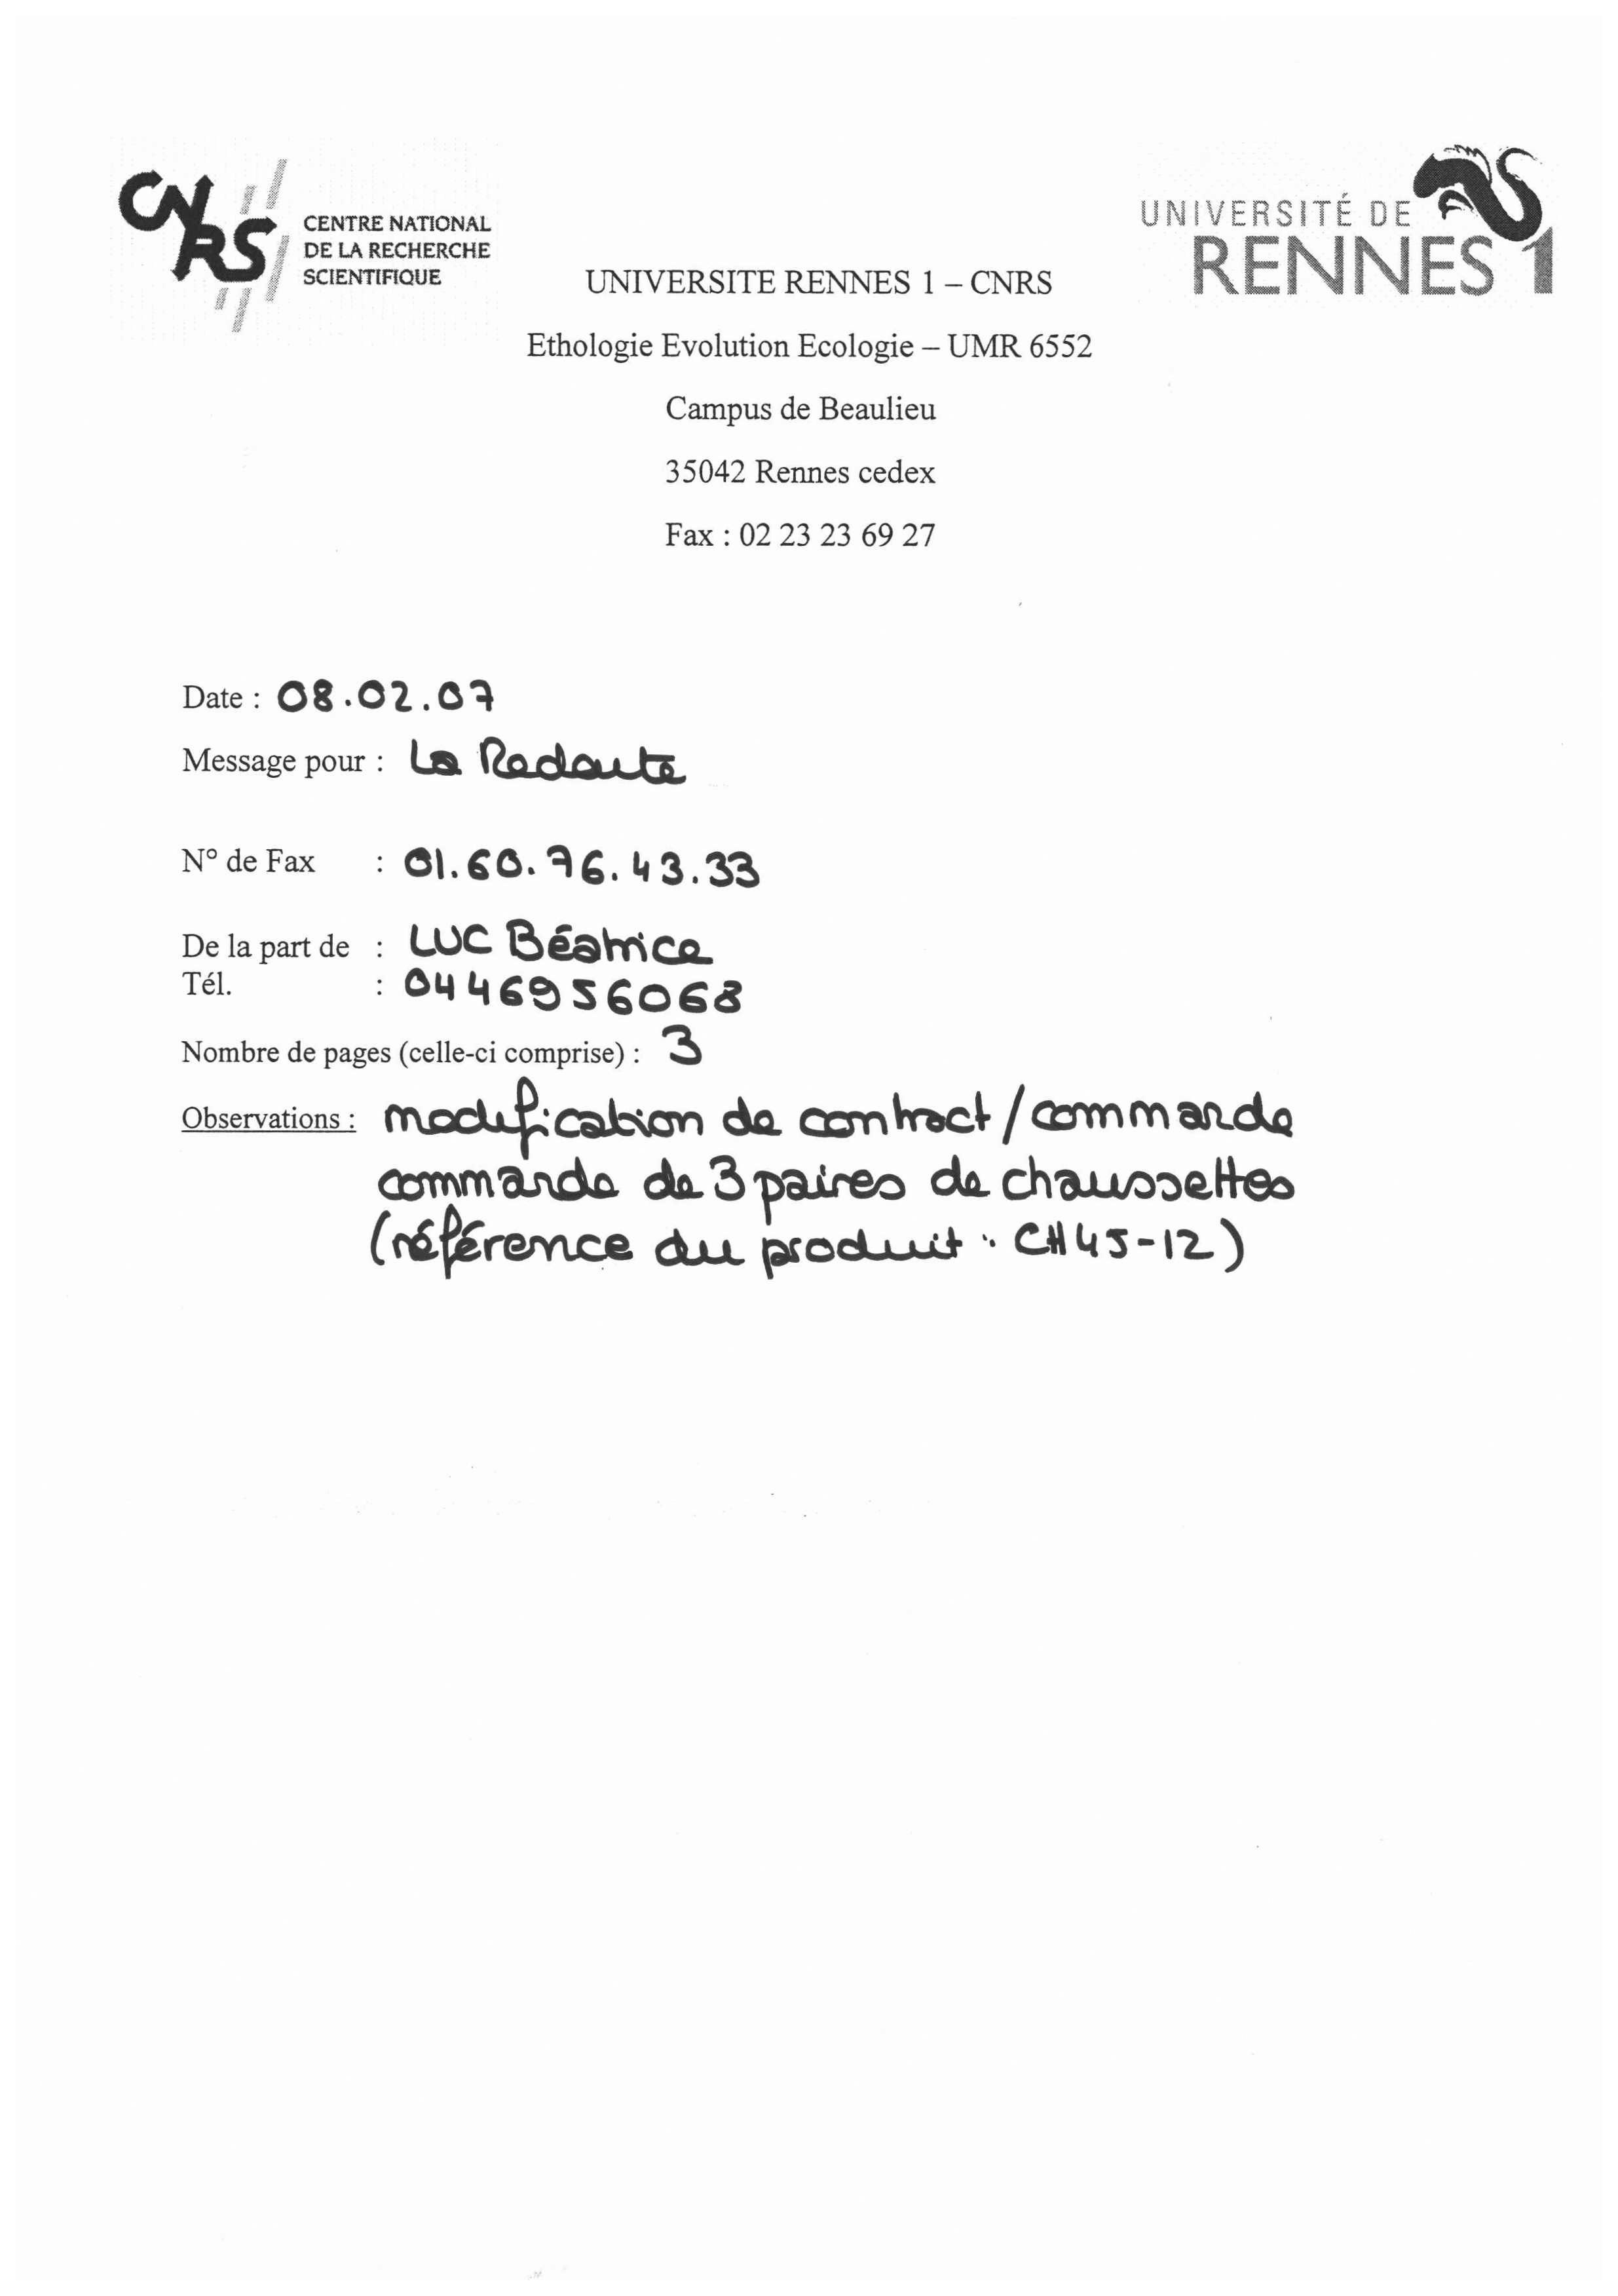 CNRS
CENTRE NATIONAL
DE LA RECHERCHE
SCIENTIFIQUE
UNIVERSITÉ DE
RENNES 1
UNIVERSITE RENNES 1 – CNRS
Ethologie Evolution Ecologie – UMR 6552
Campus de Beaulieu
35042 Rennes cedex
Fax : 02 23 23 69 27
Date : 08.02.07
Message pour : La Redoute
N° de Fax : 01.60.76.43.33
De la part de : LUC Béatrice
Tél. : 0446956068
Nombre de pages (celle-ci comprise) : 3
Observations : modification de contract/commande
commande de 3 paires de chaussettes
(référence du produit : CH45-12)